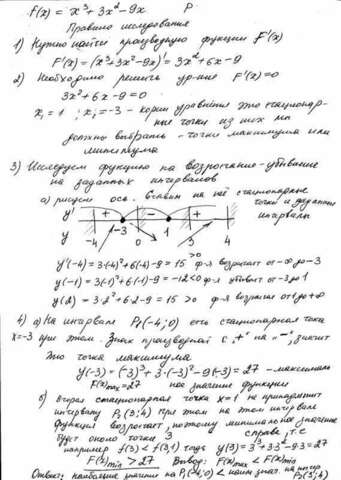 f(x) = x³ + 3x² - 9x P
Правило исследования
1) Нужно найти производную функции F'(x)
F'(x) = (x³ + 3x² - 9x)' = 3x² + 6x - 9
2) Необходимо решить ур-ние F'(x) = 0
3x² + 6x - 9 = 0
x₁ = 1 ; x₂ = -3 - корни уравнения это стационар-
ные точки из них мы
должны выбрать - точки максимума или
минимума
3) Исследуем функцию на возрастание-убывание
на заданных интервалах
а) рисуем ось. Ставим на неё стационарные
точки и заданные
интервалы
y' + - +
y -4 -3 0 1 3 4
y'(-4) = 3·(-4)² + 6(-4) - 9 = 15 >0 ф-я возрастает от -∞ до -3
y(-1) = 3(-1)² + 6(-1) - 9 = -12 < 0 ф-я убывает от -3 до 1
y(2) = 3·2² + 6·2 - 9 = 15 >0 ф-я возрастает от 1 до +∞
4) а) На интервале P₁(-4; 0) есть стационарная точка
x = -3 при этом. Знак производной с „+" на „-", значит
это точка максимума
y(-3) = (-3)³ + 3·(-3)² - 9(-3) = 27 - максималь
F(x)max = 27 ное значение функции
б) вторая стационарная точка x = 1 не принадлежит
интервалу P₂(3; 4) при этом на этом интервале
функция возрастает, поэтому минимальное значение
будет около точки 3 справа, т.е
например f(3) < f(3,1) тогда y(3) = 3³ + 3·3² - 9·3 = 27
F(x)min > 27 Вывод: F(x)max < F(x)min
Ответ: наибольшее значение на P₁(-4; 0) < наим. знач. на интер
P₂(3; 4)